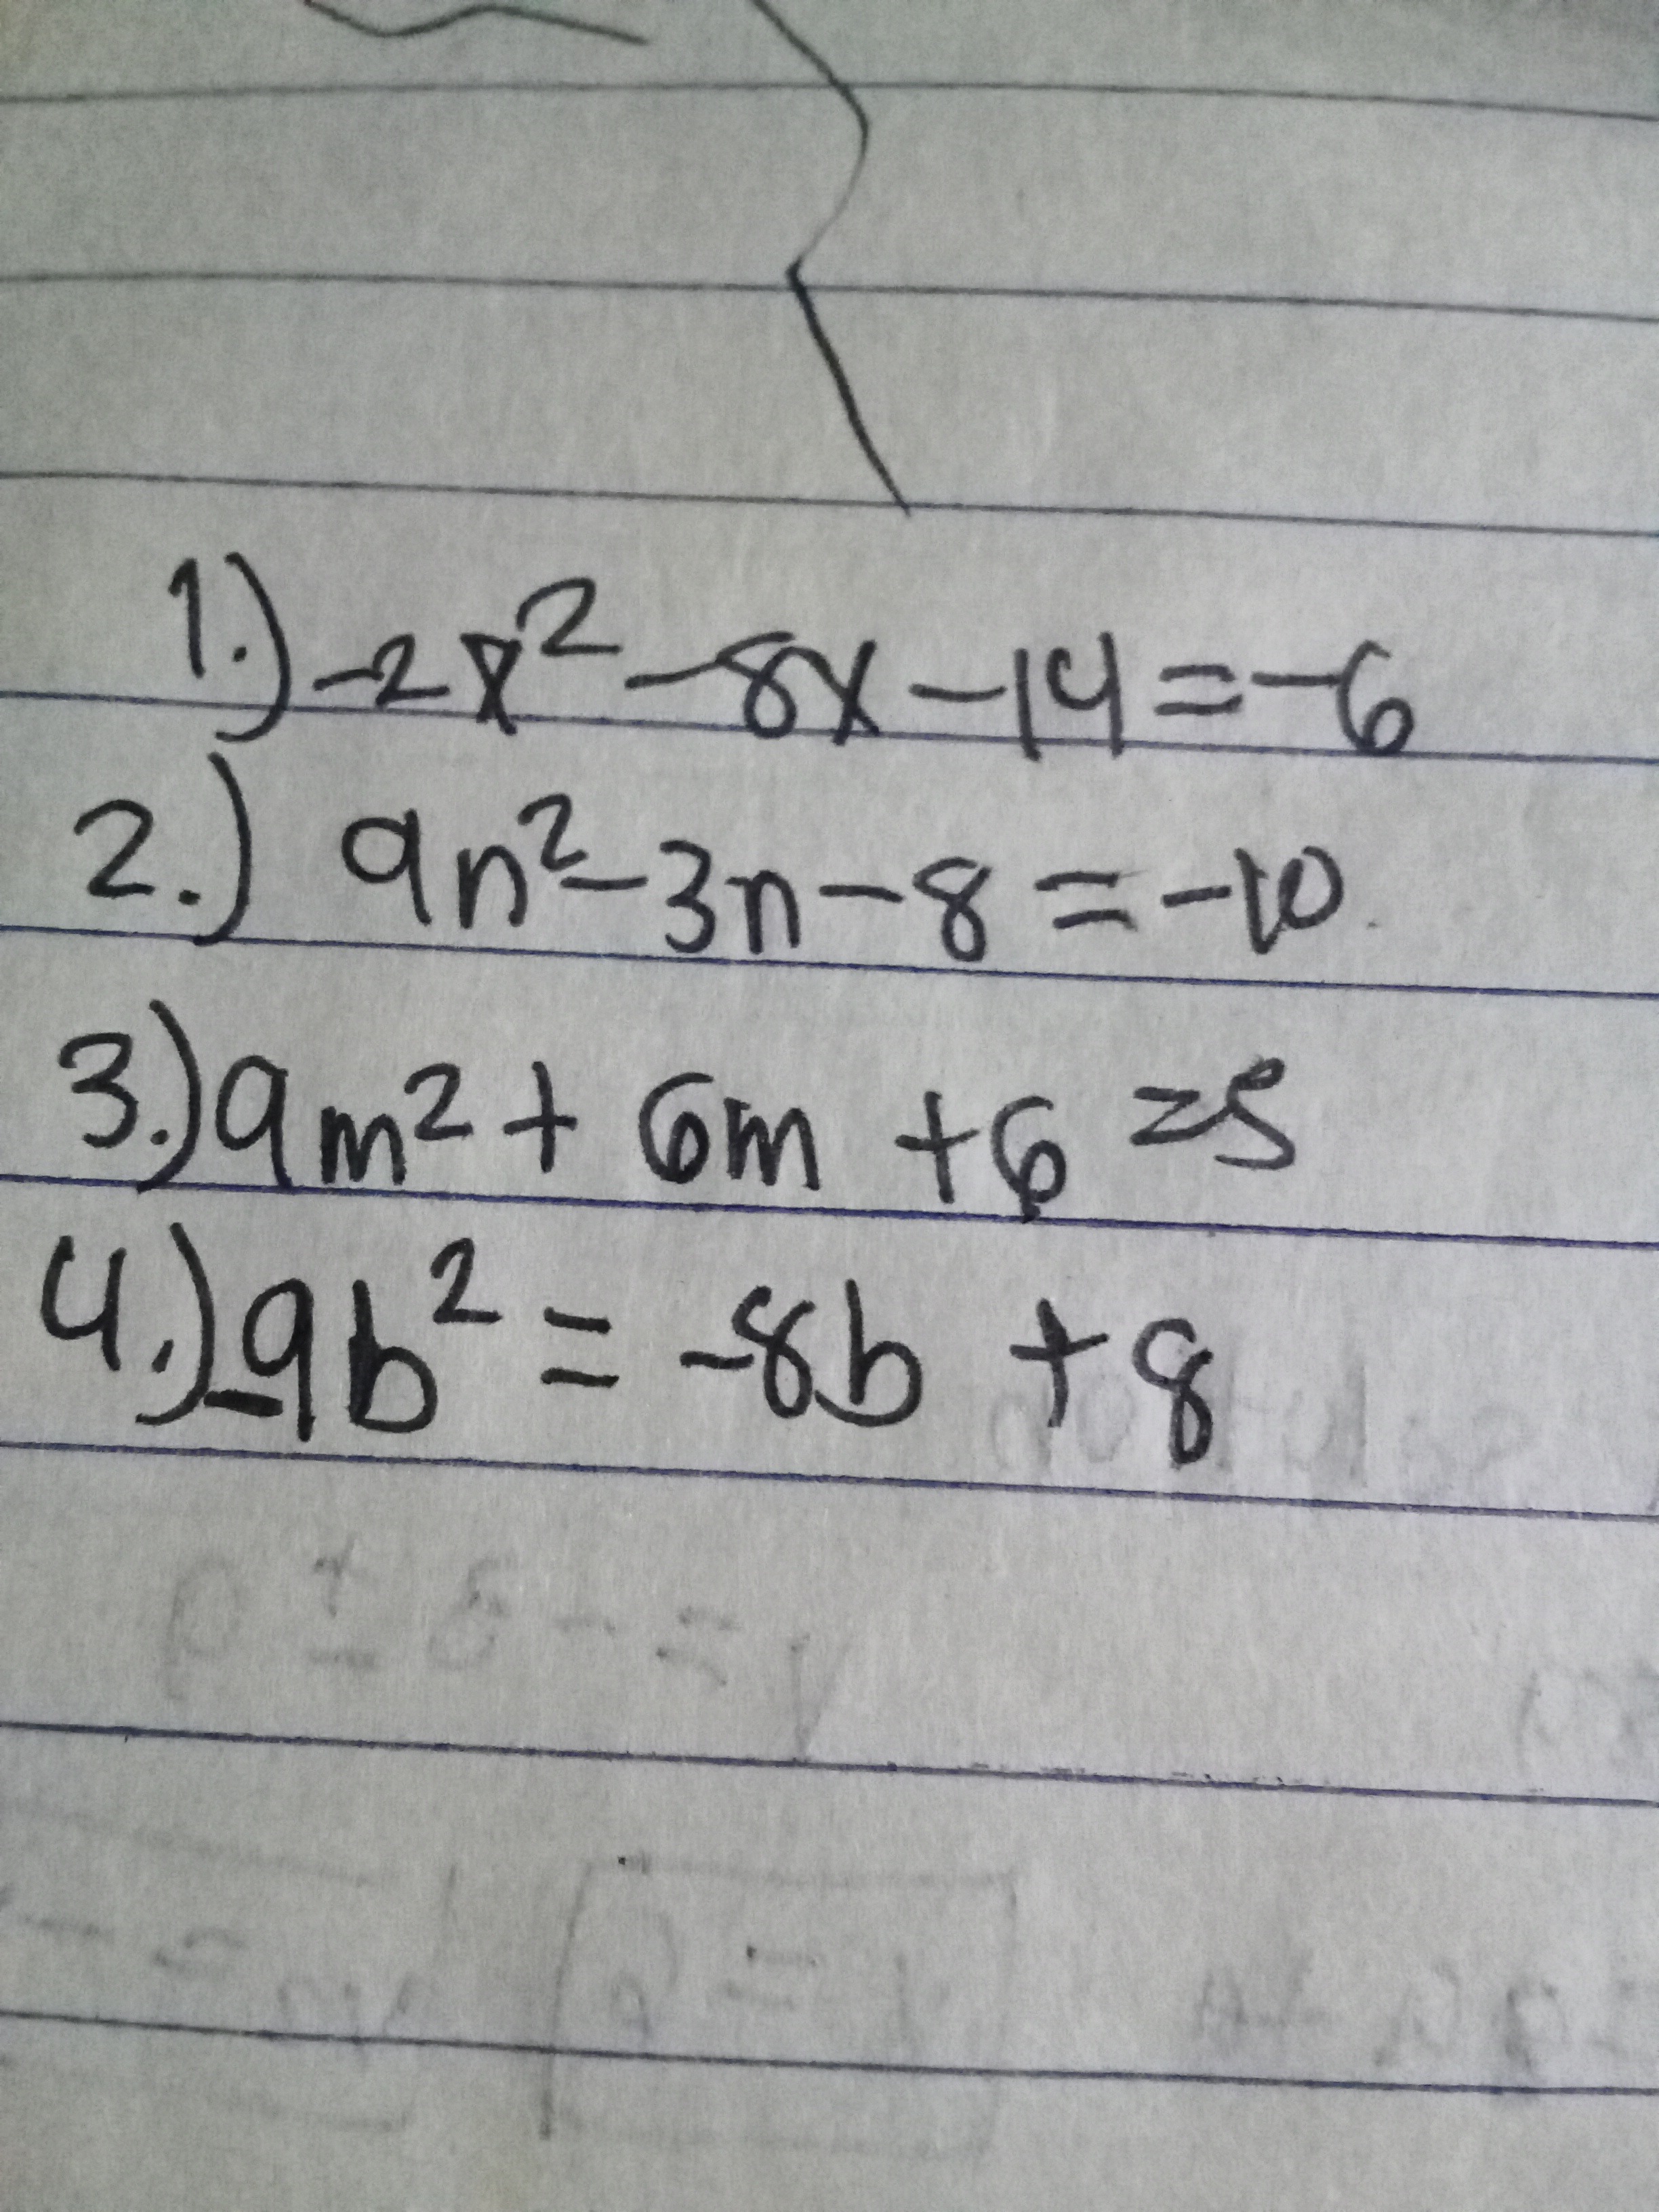 1.) -2x² - 8x - 14 = -6
2.) 9n² - 3n - 8 = -10
3.) 9m² + 6m + 6 = 5
4.) -9b² = -8b + 8